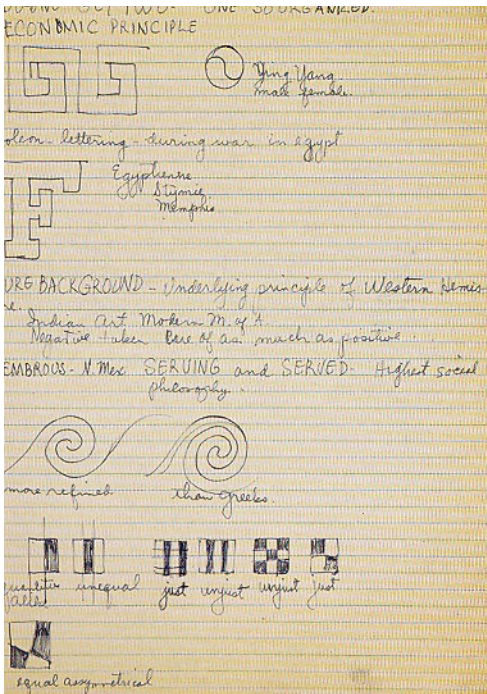 TWO. ONE SO ORGANIZED.
ECONOMIC PRINCIPLE
Ying Yang
male female.
oleon - lettering - during war in egypt
Egyptienne
Stymie
Memphis
URE BACKGROUND - Underlying principle of Western Hemis
e.
Indian Art Modern M. of A.
Negative taken care of as much as positive.
EMBROUS - N. Mex. SERVING and SERVED - Highest social
philosophy.
more refined than greeks.
unequal just unjust unjust just
equal assymetrical